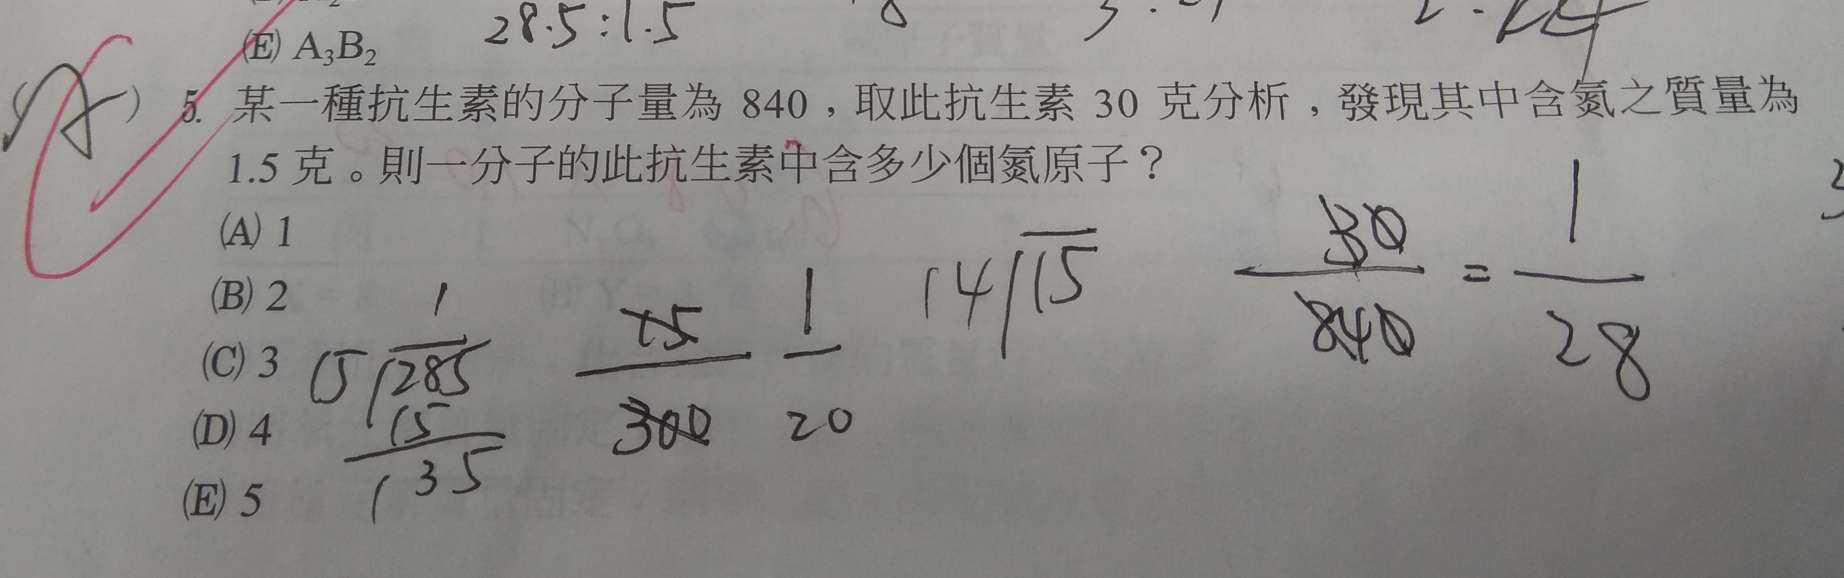 28.5:1.5
(E) A₃B₂
(A) 5. 某一種抗生素的分子量為 840，取此抗生素 30 克分析，發現其中含氮之質量為
1.5 克。則一分子的此抗生素中含多少個氮原子？
(A) 1
(B) 2
(C) 3
(D) 4
(E) 5
1
15 285
15
135
15
300
1
20
14 15
30
840
=
1
28